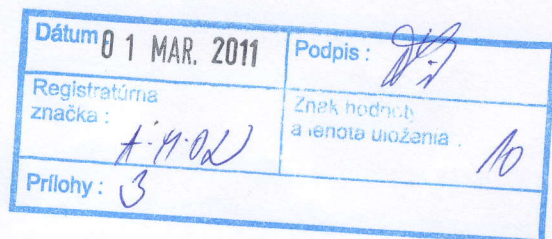 Dátum 01 MAR. 2011
Podpis :
Registratúrna
značka :
Znak hodnoty
a lehota uloženia :
10
Prílohy : 3